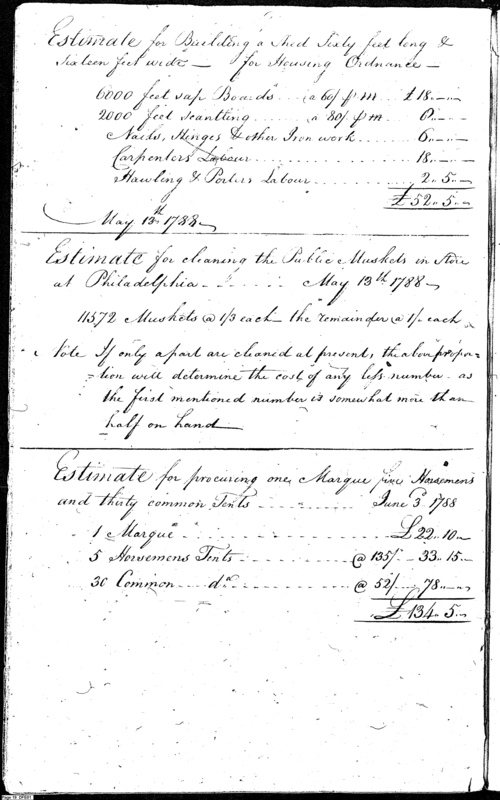 Estimate for Building a Shed Sixty feet long &
Sixteen feet wide — for Housing Ordnance —
6000 feet sap Boards ... @ 60/ p m . £ 18 .. — .. —
2000 feet scantling ... @ 80/ p m . 8 .. — .. —
Nails, Hinges & other Iron work ... 6 .. — .. —
Carpenters Labour ... 18 .. — .. —
Hawling & Porters Labour ... 2 .. 5 .. —
£ 52 .. 5 .. —
May 13th 1788 —
Estimate for cleaning the Public Muskets in Store
at Philadelphia - - - - - May 13th 1788 —
11572 Muskets @ 1/3 each — the remainder @ 1/- each
Note If only a part are cleaned at present, the above propor=
=tion will determine the cost of any less number - as
the first mentioned number is somewhat more than
half on hand —
Estimate for procuring one Marque five Horsemens
and thirty common Tents - - - - - June 3d 1788
1 Marque - - - - - £ 22 .. 10 —
5 Horsemens Tents - - - - - @ 135/ . 33 .. 15 —
30 Common do - - - - - @ 52/ . 78 .. — .. —
£ 134 .. 5 .. —